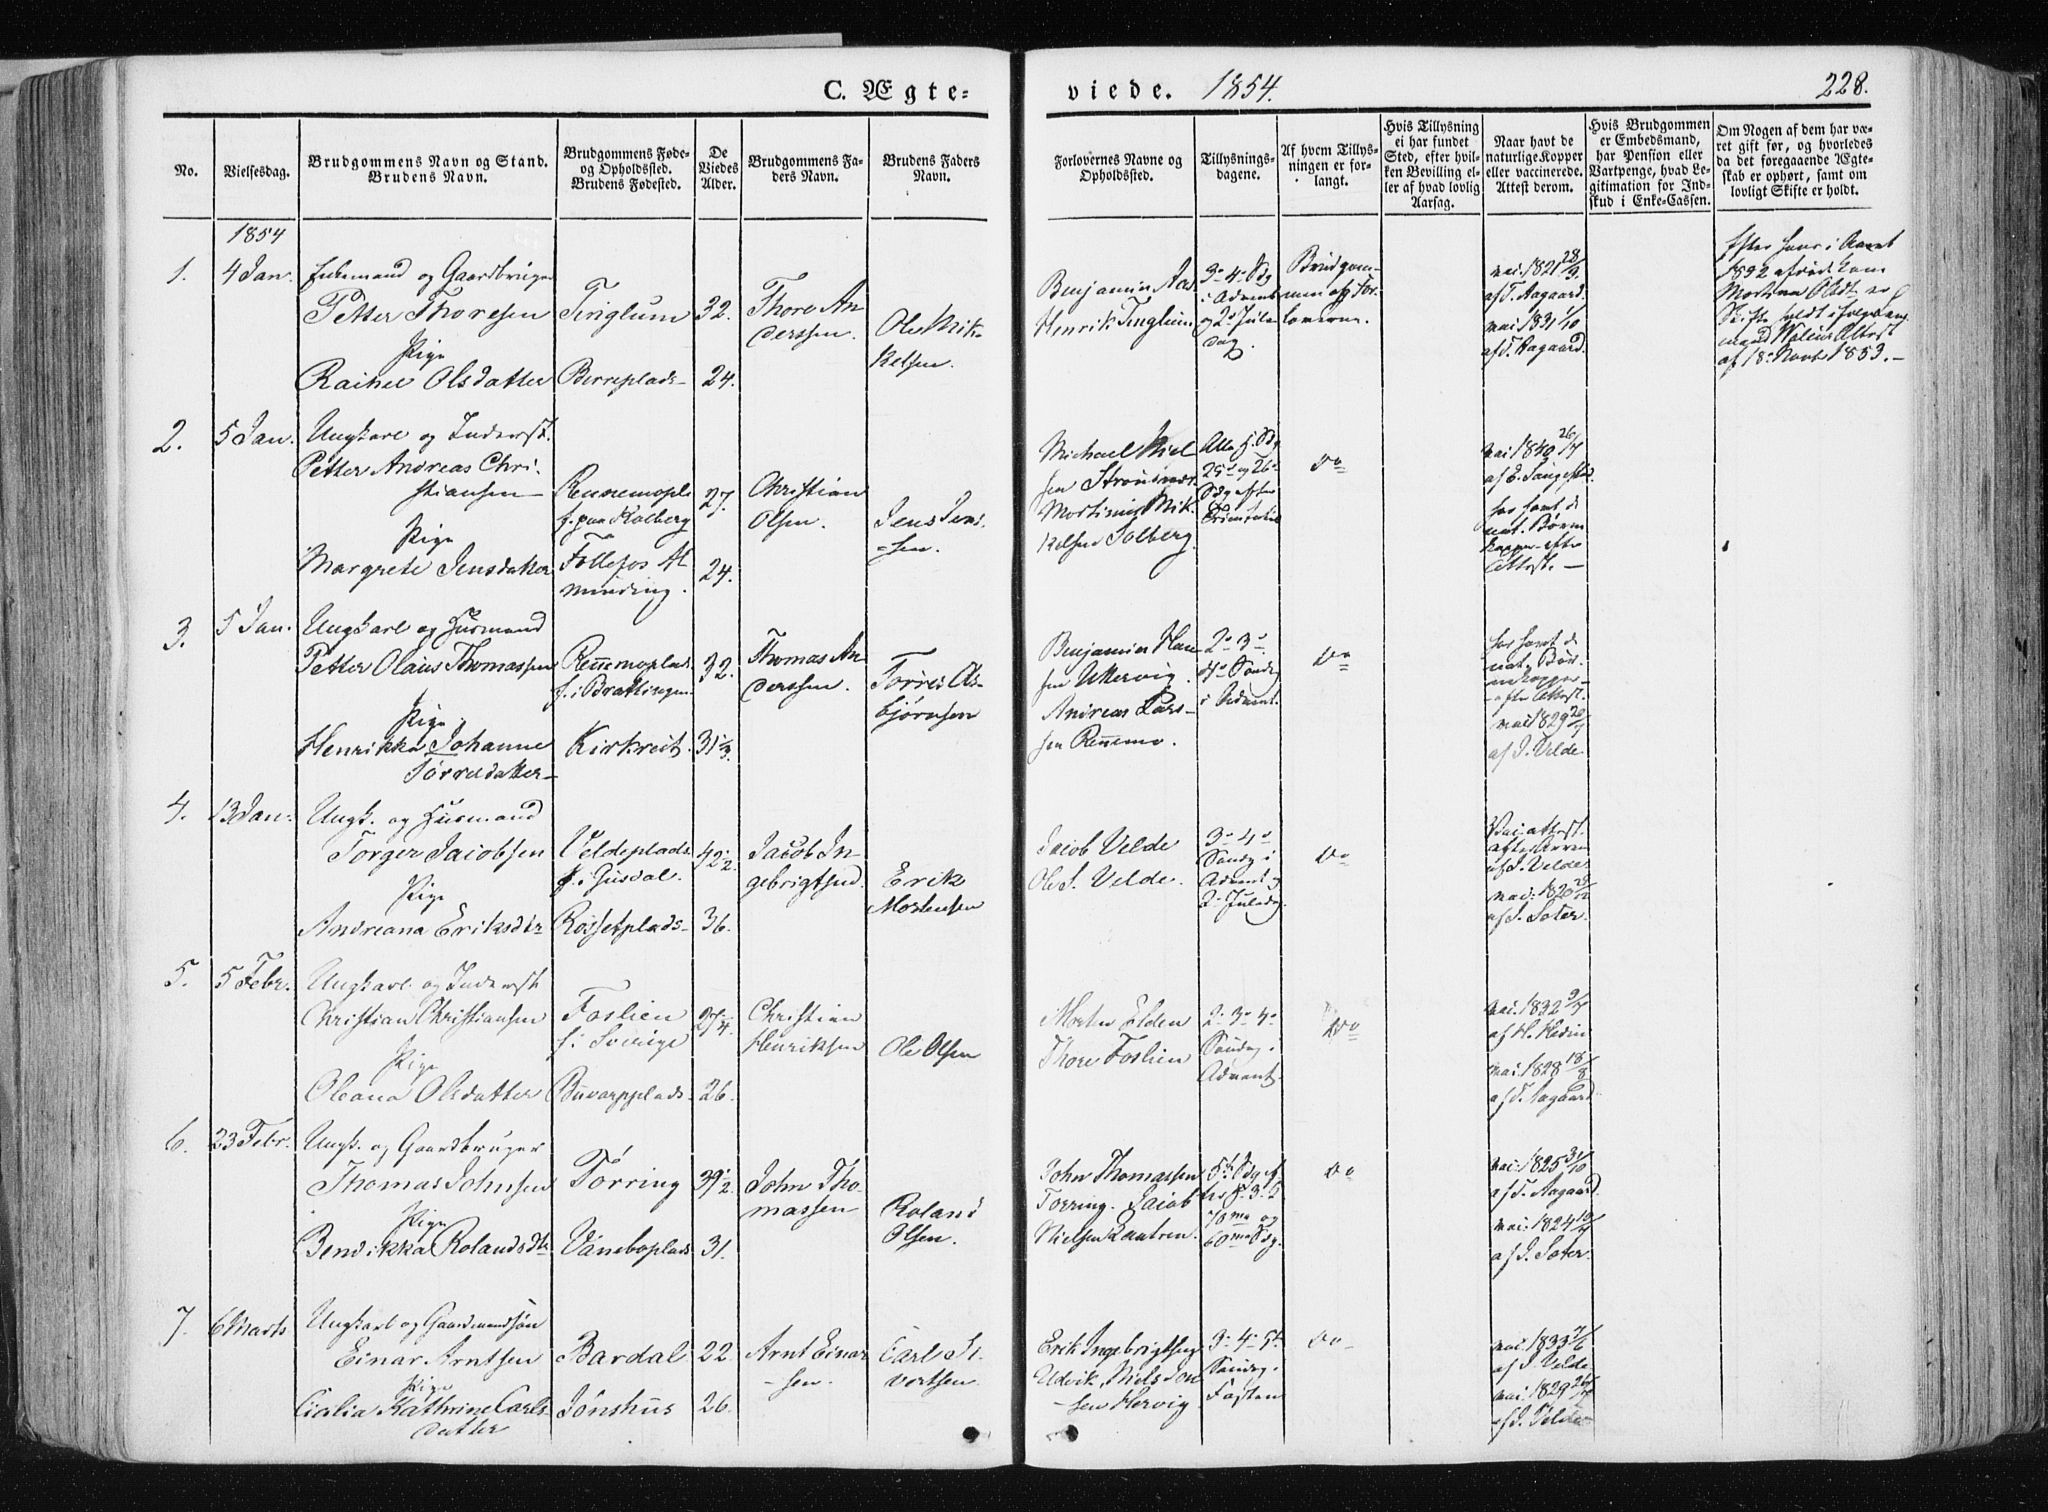 C. Ægte-
viede. 1854.
228.
No.
Vielsesdag.
Brudgommens Navn og Stand.
Brudens Navn.
Brudgommens Føde-
og Opholdssted.
Brudens Fødested.
De
Viedes
Alder.
Brudgommens Fa-
ders Navn.
Brudens Faders
Navn.
Forlovernes Navne og
Opholdssted.
Tillysnings-
dagene.
Af hvem Tillys-
ningen er for-
langt.
Hvis Tillysning
ei har fundet
Sted, efter hvil-
ken Bevilling el-
ler af hvad lovlig
Aarsag.
Naar havt de
naturlige Kopper
eller vaccinerede.
Attest derom.
Hvis Brudgommen
er Embedsmand,
har Pension eller
Vartpenge, hvad Le-
gitimation for Ind-
skud i Enke-Cassen.
Om Nogen af dem har væ-
ret gift før, og hvorledes
da det foregaaende Ægte-
skab er ophørt, samt om
lovligt Skifte er holdt.
1854
1.
4 Jan.
Enkemand og Gaardbruger
Petter Thoresen
Pige
Rachel Olsdatter
Tinglum
Berreplads
32.
24.
Thore An-
derssen.
Ole Mik-
kelsen.
Benjamin Aas
Henrik Tinglum
3- 4- Sdg
i Advent
og 2- Jule
dag.
Brudgom-
men og For-
loverne.
vac. 1821 28/9.
af T. Aagaard.
vac. 1831 1/10
af T. Aagaard.
af 18 Novbr 1853.-
2.
5 Jan.
Ungkarl og Inderst.
Petter Andreas Chri-
stiansen
Pige
Margrete Jensdatter
Rennemopls
f. paa Kolberg
Follefos Al-
minding.
27.
24.
Christian
Olsen.
Jens Jens-
sen.
Michael Niel
sen
Mortinus Mik
kelsen Solberg.
25- og 26-
Sdg efter
Trinitatis
Do
vac. 1840 26/7
har havt de
nat. Børne
kopper efter
Attest.
3.
5 Jan.
Ungkarl og Husmand
Petter Olaus Thomassen
Pige
Henrikka Johanne
Torresdatter
Rennemoplads
f. i Brattingen
Kirkreit.
32.
31 1/3.
Thomas An-
derssen.
Torres As-
bjørnsen
Benjamin Han
sen Utvervig.
Andreas Lars-
sen Rennemo.
2- 3-
4- Søndg
i Advent.
Do
har havt de
nat. Bør-
nekopper
efter Attest.
vac. 1829 20/7
af I. Velde.
4.
13 Jan.
Ungk. og Husmand
Torger Jacobsen
Pige
Andreana Eriksdtr
Veldeplads
f. i Gusdal.
Rossetplads
42 1/2.
36.
Jacob In-
gebrigtsen.
Erik
Mortensen
Jacob Velde
Ole I. Velde.
3- 4-
Søndg i
Advent og
2- Juledag.
Do
af I. Velde
vac. 1820
af I. Soter.
5.
5 Febr.
Ungkarl og Inderst
Christian Christiansen
Pige
Oleana Olsdatter
Foslien
f. i Sverige
Buvarpplads
27 1/4.
26.
Christian
Henriksen
Ole Olsen
Morten Elden
Thore Foslien
2- 3- 4-
Søndg i
Advent.
Do
vac. 1832 9/7
af H. Hedin
vac. 1828 18/8
af T. Aagaard
6.
23 Febr.
Ungk. og Gaardbruger
Thomas Johnsen
Pige
Bendikka Rolandsdtr
Torring
Vaneboplads
39 1/2.
31.
John Tho-
massen
Roland
Olsen.
John Thomassen
Torring. Jacob
Nielsen
70me og
60me Sdg.
Do
vac. 1825 31/10
af T. Aagaard.
vac. 1824 10/7
af I. Soter.
7.
6 Marts
Ungkarl og Gaardmandssøn
Einar Arntsen
Pige
Cicilia Kathrine Carls
datter
Bardal
Jønshus
22.
26.
Arnt Einar
-sen.
Carl Si-
vertsen.
Erik Ingebrigtsen
Utvik, Niels Jon
-sen Hervig
3- 4- 5te
Søndg i
Fasten
Do
vac. 1833 7/6
af I. Velde
vac. 1829 26/7
af I. Velde